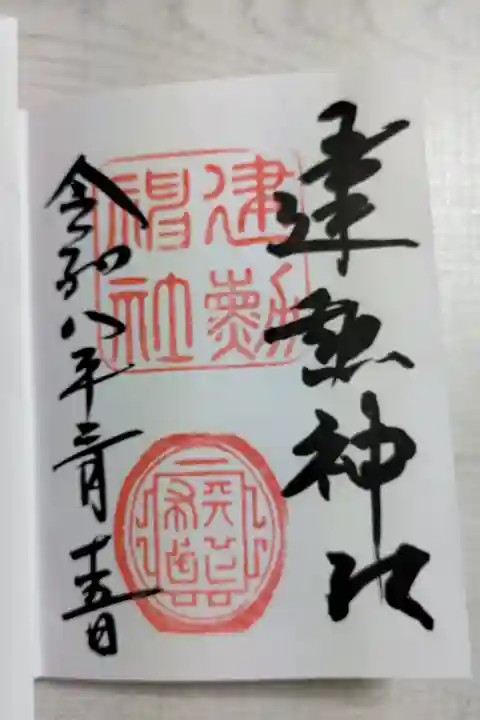 建勲神社
建勳
神社
令和八年二月十五日